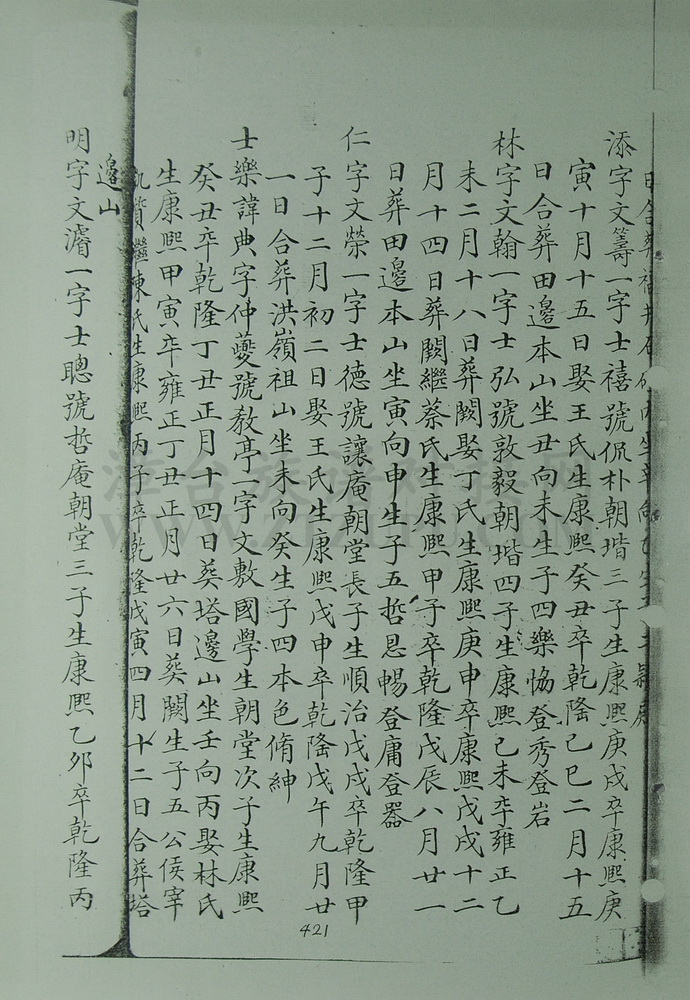 日合葬
添字文籌一字士禧號侃朴朝堦三子生康熙庚戌卒康熙庚
寅十月十五日娶王氏生康熙癸丑卒乾隆己巳二月十五
日合葬田邊本山坐丑向未生子四樂恊登秀登岩
林字文翰一字士弘號敦毅朝堦四子生康熙己未卒雍正乙
未二月十八日葬闕娶丁氏生康熙庚申卒康熙戊戌十二
月十四日葬闕繼蔡氏生康熙甲子卒乾隆戊辰八月廿一
日葬田邊本山坐寅向申生子五哲恩暢登庸登器
仁字文榮一字士德號讓庵朝堂長子生順治戊戌卒乾隆甲
子十二月初二日娶王氏生康熙戊申卒乾隆戊午九月廿
一日合葬洪嶺祖山坐未向癸生子四本色脩紳
士樂諱典字仲夔號敎亭一字文敷國學生朝堂次子生康熙
癸丑卒乾隆丁丑正月十四日葬塔邊山坐壬向丙娶林氏
生康熙甲寅卒雍正丁丑正月廿六日葬闕生子五公侯宰
繼陳氏生康熙丙子卒乾隆戊寅四月十二日合葬塔
邊山
明字文濬一字士聰號哲庵朝堂三子生康熙乙卯卒乾隆丙
421